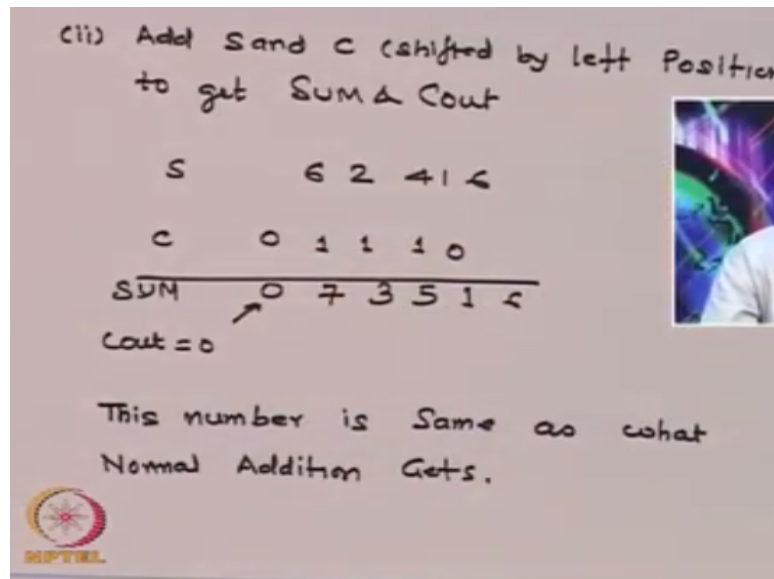 (ii) Add S and C (shifted by left Position
to get SUM & Cout
S 6 2 4 1 6
C 0 1 1 1 0
SUM 0 7 3 5 1 6
Cout = 0
This number is Same as what
Normal Addition Gets.
NPTEL